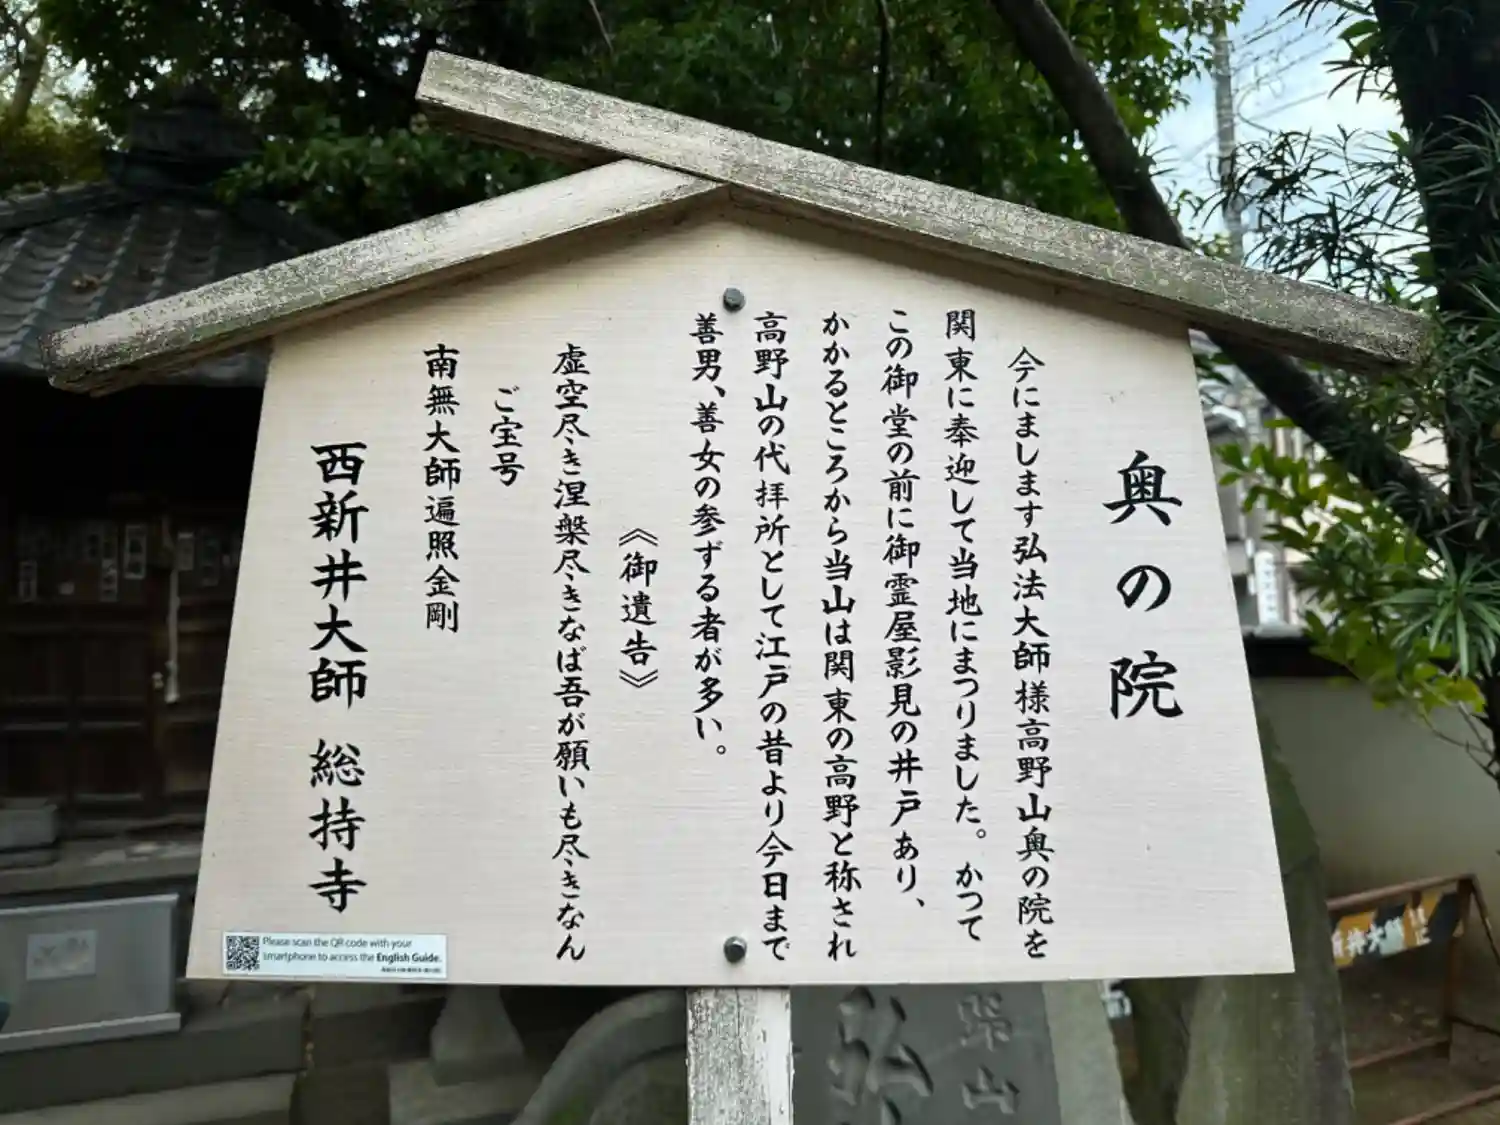 奥の院
今にまします弘法大師様高野山奥の院を
関東に奉迎して当地にまつりました。かつて
この御堂の前に御霊屋影見の井戸あり、
かかるところから当山は関東の高野と称され
高野山の代拝所として江戸の昔より今日まで
善男、善女の参ずる者が多い。
《御遺告》
虚空尽き涅槃尽きなば吾が願いも尽きなん
ご宝号
南無大師遍照金剛
西新井大師 総持寺
Please scan the QR code with your
smartphone to access the English Guide.
井大師